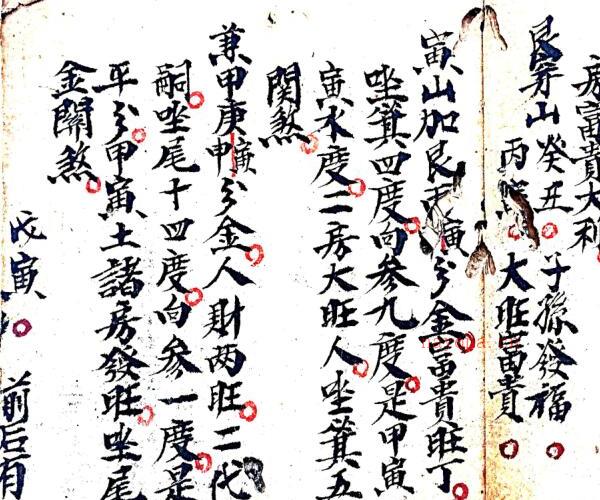 房富貴大利
艮芽山癸丑 子孫發福
丙 大旺富貴
寅山加艮丙寅分金富貴旺丁
坐箕四度向參九度是甲寅
寅水度二房大旺人坐箕五
関煞
兼甲庚申寅分金人財两旺二代
嗣坐尾十四度向參一度是
平分甲寅土諸房發旺坐尾
金關煞
戊寅
前后有